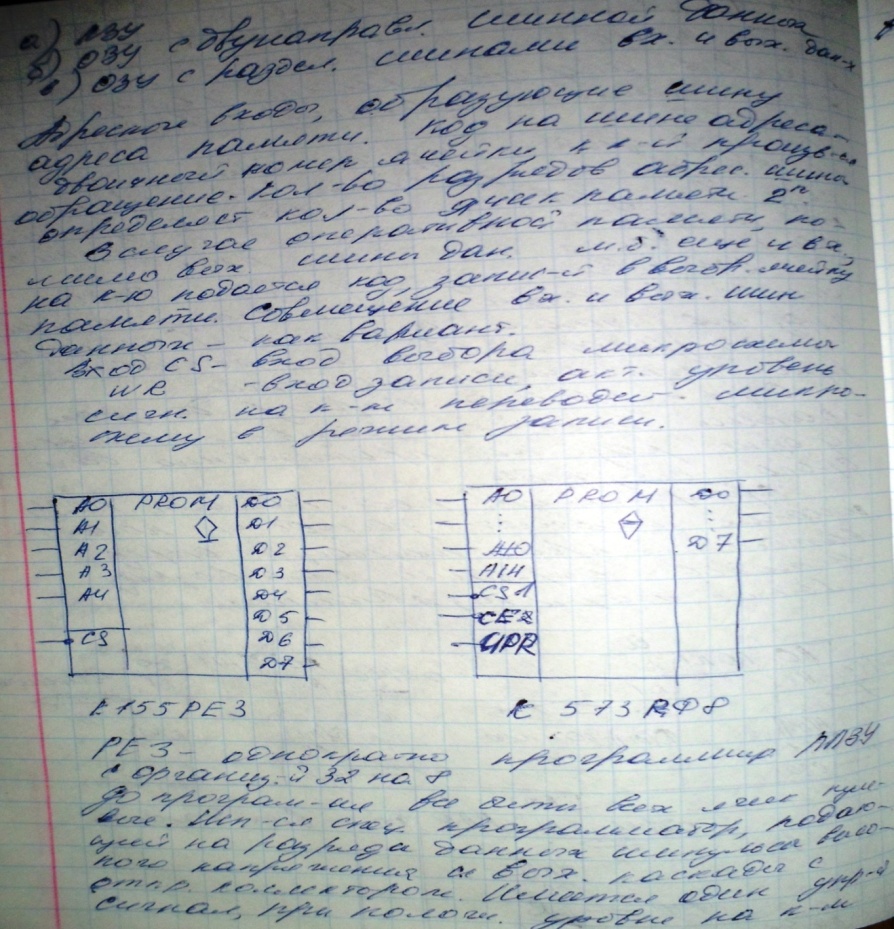 а) ПЗУ
б) ОЗУ с двунаправл. шинной данных
в) ОЗУ с раздел. шинами вх. и вых. дан-х
Адресные входы, образующие шину
адреса памяти. Код на шине адреса -
двоичный номер ячейки, к к-й произв-ся
обращение. Кол-во разрядов адрес. шины
определяет кол-во ячеек памяти 2ⁿ
В случае оперативной памяти, по-
мимо вых. шины дан. м.б. еще и вх,
на к-ю подается код, запис-й в выбр. ячейку
памяти. Совмещение вх. и вых. шин
данных - как вариант.
Вход CS - вход выбора микросхемы
WR - вход записи, акт. уровень
сигн. на к-м переводит микро-
схему в режим записи.
A0 PROM D0
A1 D1
A2 D2
A3 D3
A4 D4
D5
CS D6
D7
К155РЕ3
A0 PROM D0
⋮ ⋮
A10 D7
A14
CS1
CE2
UPR
К 573 РФ8
РЕ3 - однократно программир ППЗУ
с организ-й 32 на 8
До програм-ия все биты всех ячеек нуле-
вые. Исп-ся спец программатор, подаю-
щий на разряды данных импульсы высо-
кого напряжения и вых. каскады с
откр. коллектором. Имеется один упр-й
сигнал, при полож. уровне на к-м